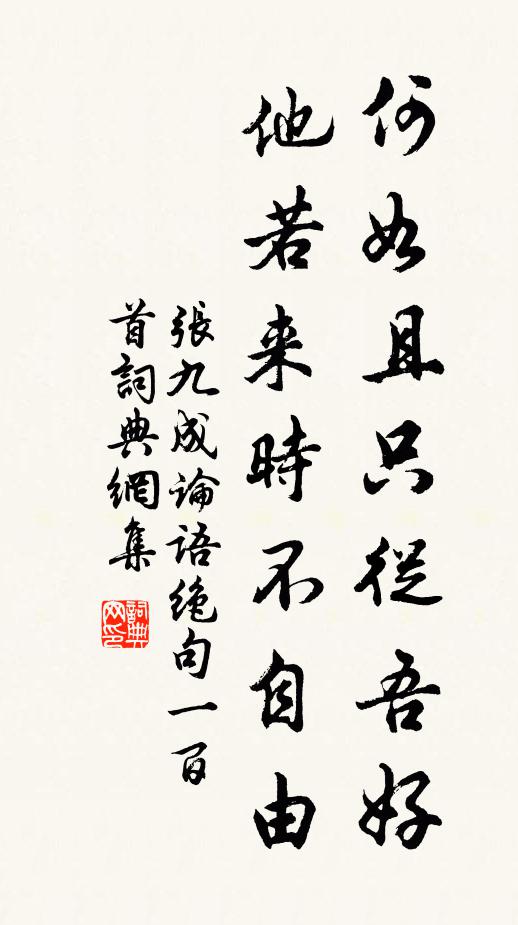 何如且只從吾好
他若来時不自由
張九成論語絶句一百
首詞典網集
詞典网印